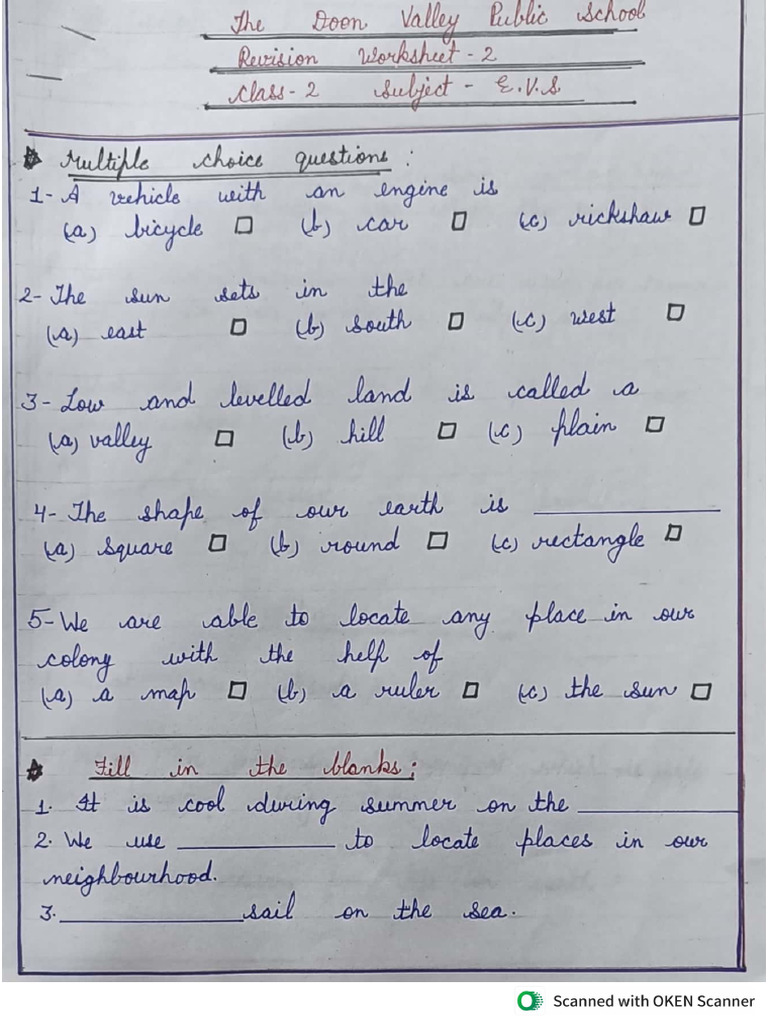 The Doon Valley Public School
Revision Worksheet - 2
Class - 2 Subject - E.V.S.
Multiple choice questions :
1- A vehicle with an engine is
(a) bicycle (b) car (c) rickshaw
2- The sun sets in the
(a) east (b) south (c) west
3- Low and levelled land is called a
(a) valley (b) hill (c) plain
4- The shape of our earth is ________
(a) square (b) round (c) rectangle
5- We are able to locate any place in our
colony with the help of
(a) a map (b) a ruler (c) the sun
Fill in the blanks ;
1. It is cool during summer on the ________
2. We use ________ to locate places in our
neighbourhood.
3. ________ sail on the sea.
Scanned with OKEN Scanner